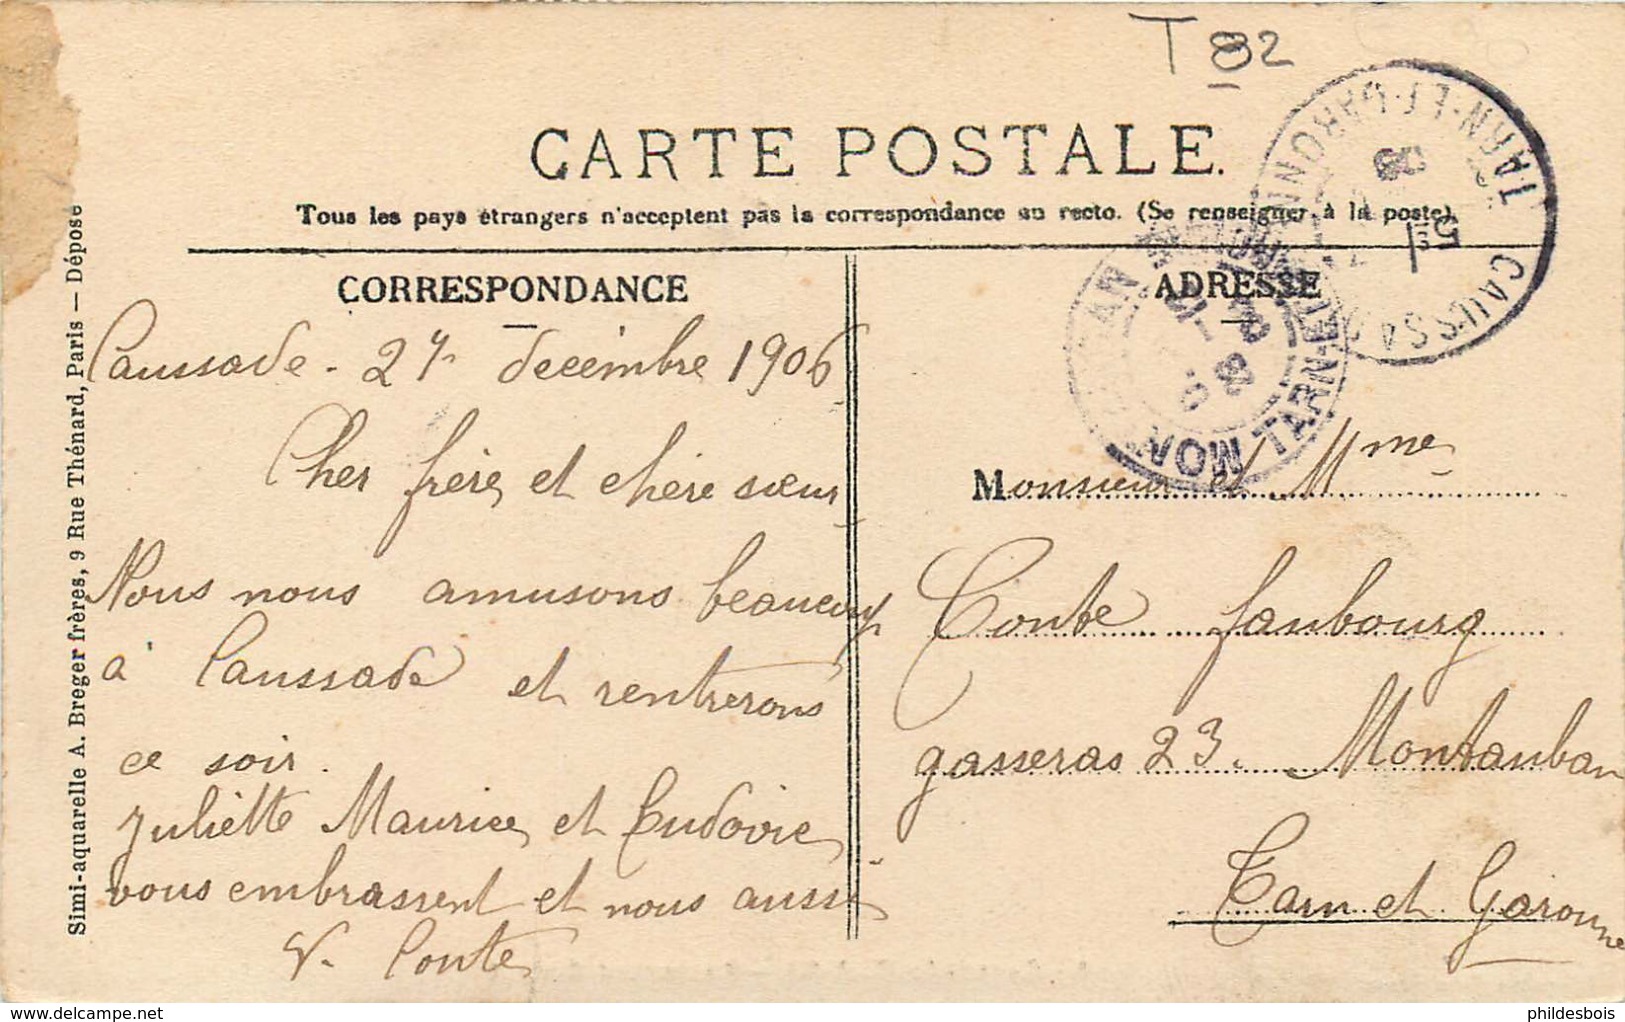 T 82
CARTE POSTALE.
Tous les pays étrangers n'acceptent pas la correspondance au recto. (Se renseigner à la poste)
CORRESPONDANCE
Caussade - 27 decembre 1906
Cher frère et chère sœur
Nous nous amusons beaucoup
à Caussade et rentrerons
ce soir.
Juliette Maurice et Ludovic
vous embrassent et nous aussi
V. Conte
ADRESSE
Monsieur et Mme
Conte faubourg
gasseras 23. Montauban
Tarn et Garonne
Simi-aquarelle A. Breger frères, 9 Rue Thénard, Paris — Déposé
CAUSSADE
TARN-ET-GARONNE
TARN-ET-GARONNE
delcampe.net
phildesbois